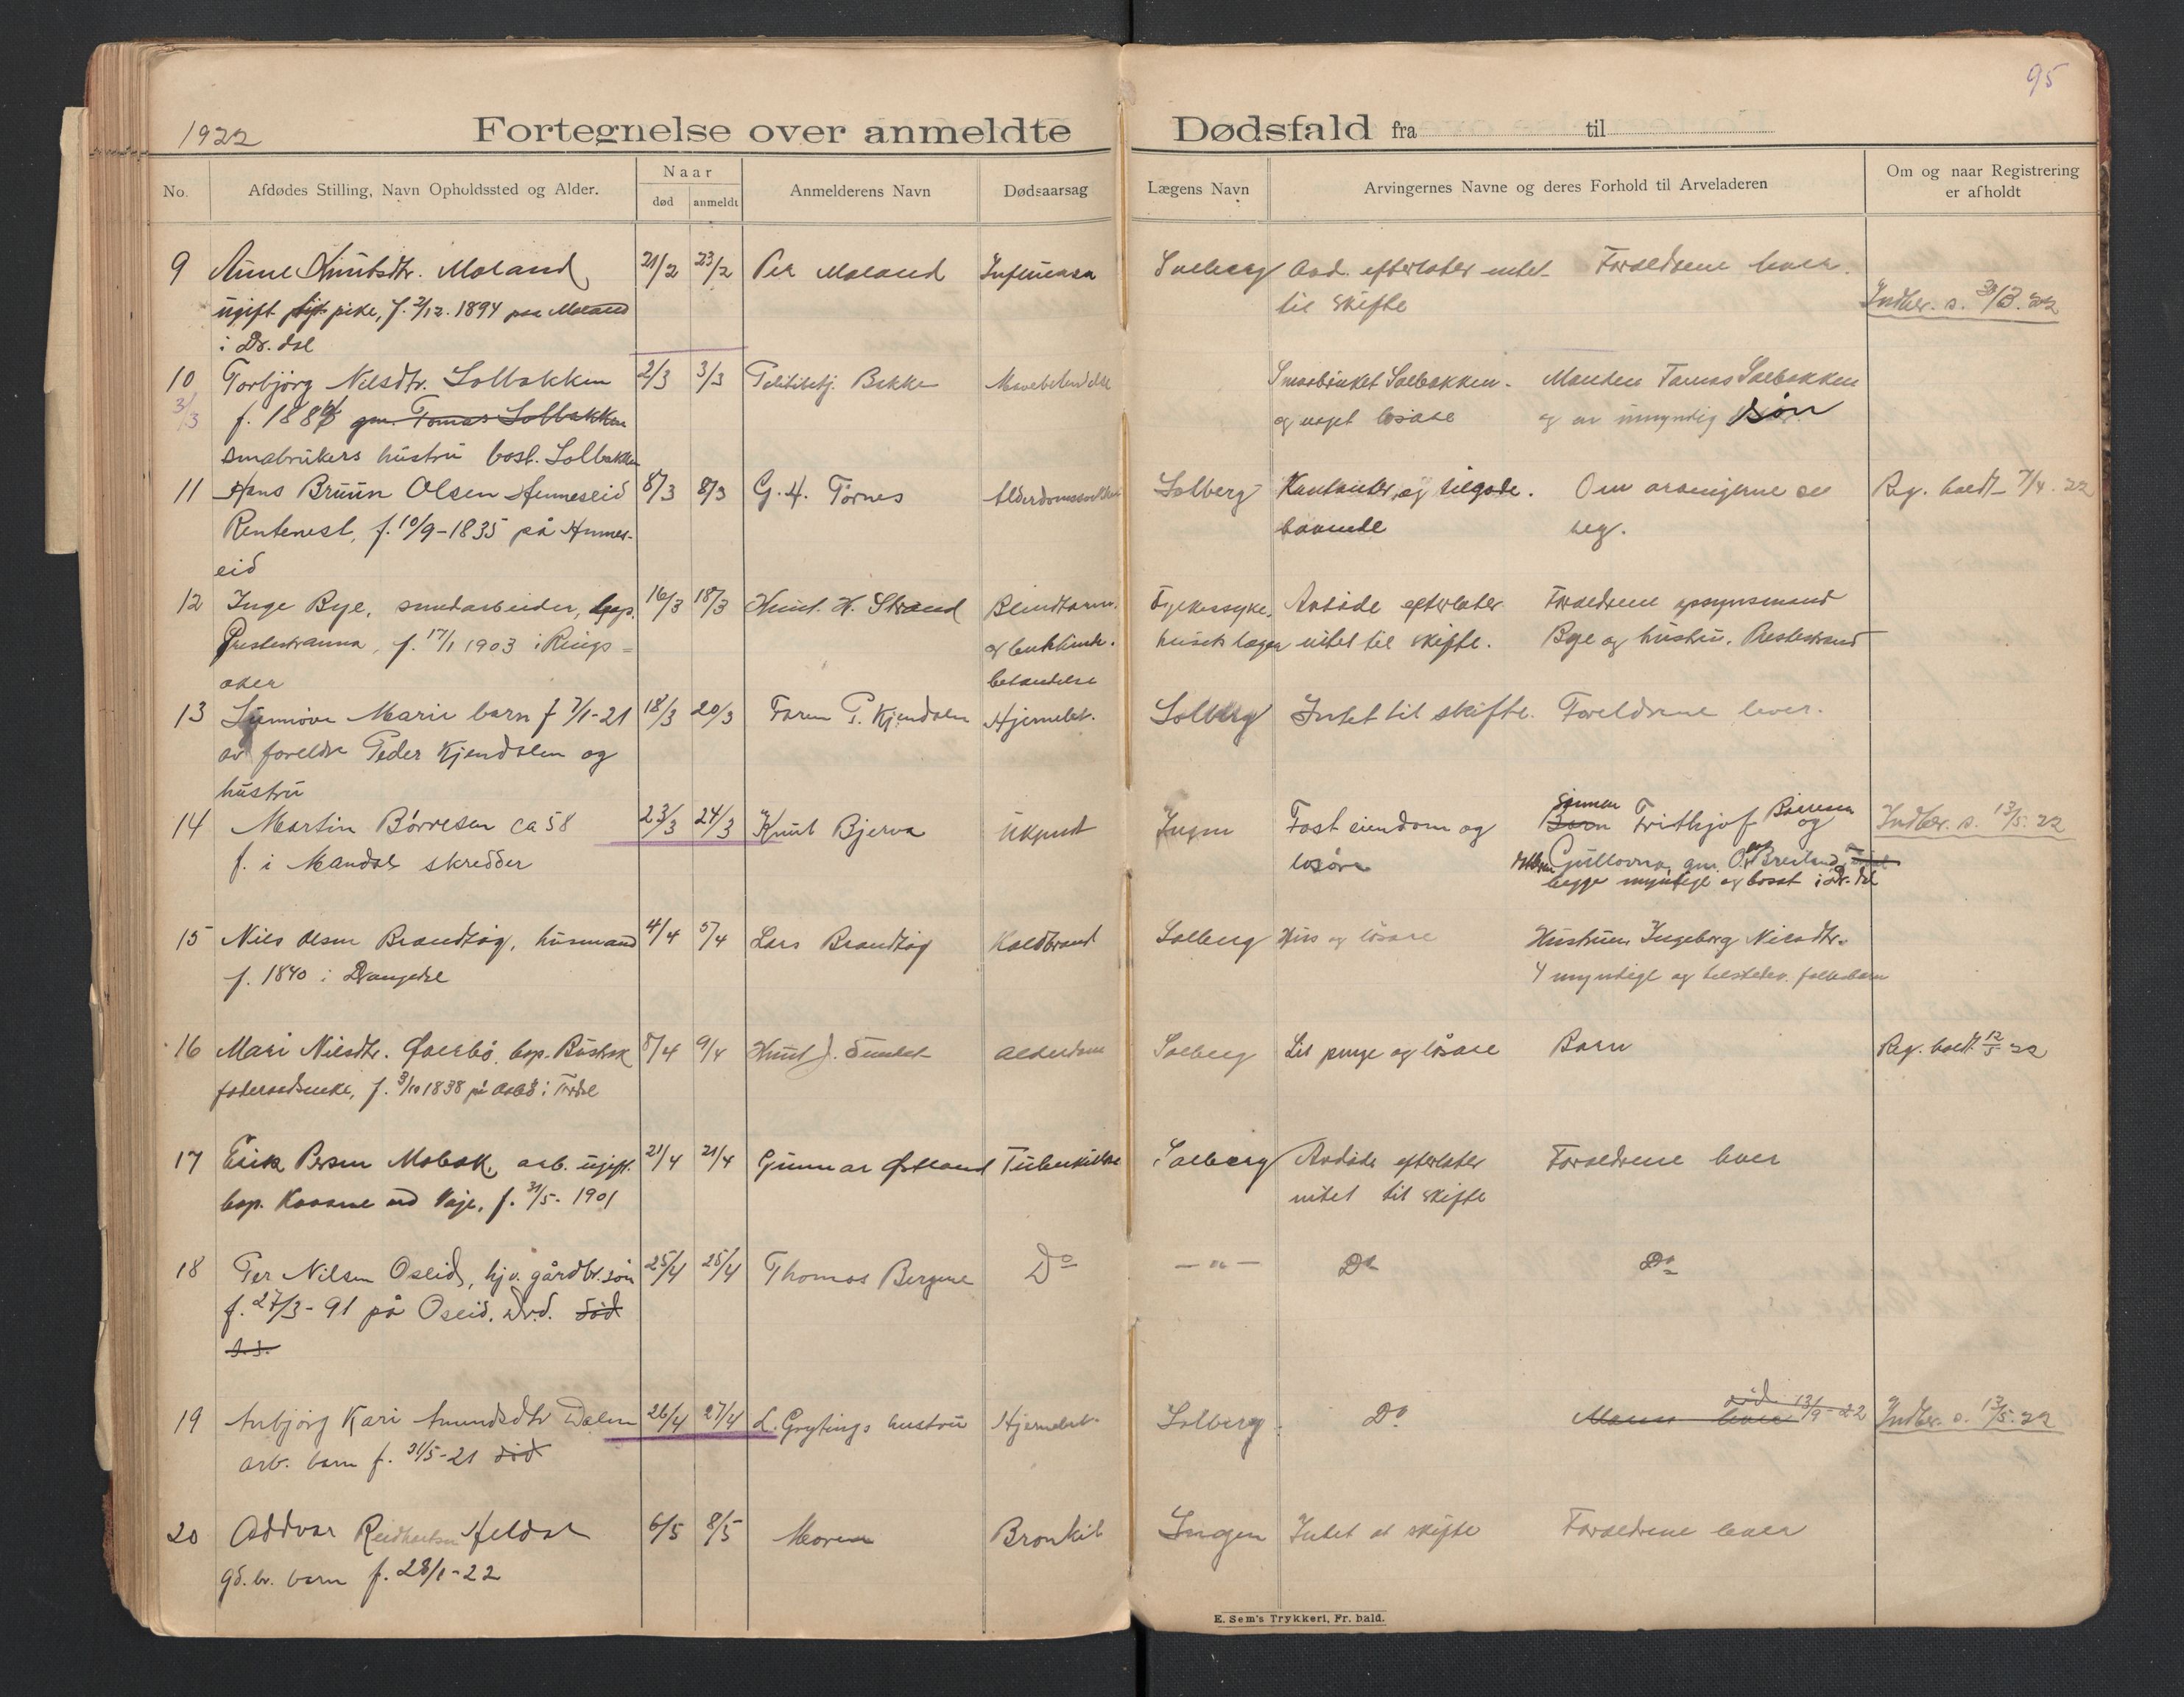 95
1922 Fortegnelse over anmeldte Dødsfald fra til
No. Afdødes Stilling, Navn Opholdssted og Alder. Naar død anmeldt Anmelderens Navn Dødsaarsag Lægens Navn Arvingernes Navne og deres Forhold til Arveladeren Om og naar Registrering er afholdt
9 Anne Knutsdtr. Moland 21/2 23/2 Per Moland Influensa Solberg Avd. efterlater intet Foreldrene lever.
ugift pike, f. 2/12. 1894 paa Moland til skifte Indber. s. 30/3. 22
i Dr.dal
10 Torbjörg Nilsdtr. Solbakken 2/3 3/3 Politibetj. Bakke Mavebetændelse Smaabruket Solbakken Manden Tomas Solbakken
3/3 f. 188 gm. Tomas Solbakken og noget løsøre og en umyndig søn
smabrukers hustru bost. Solbakken
11 Hans Bruun Olsen Henneseid 8/3 8/3 G. H. Tørnes Solberg Kontanter og tilgode. Om arvingerne se Reg. holdt 7/4. 22
Rentenest, f. 10/9-1835 på Hennes- havende reg.
eid
12 Inge Bye, smedarbeider, bop. 16/3 18/3 Knut K. Strand Blindtarm. Fylkessyke. Avdøde efterlater Foreldrene opsynsmand
Prestestranna, f. 17/1 1903 i Rings= og bukhinde. husets lægen intet til skifte. Bye og hustru, Prestestrand
aker betændelse
13 Sunnöve Marie barn f 7/1-21 18/3 20/3 Faren P. Kjendalen Hjernebet. Solberg Intet til skifte. Foreldrene lever.
av foreldre Peder Kjendalen og
hustru
14 Martin Börresen ca 58 23/3 24/3 Knut Bjerva ukjent Ingen Fast eiendom og Sønnen Barn Frithjof Börresen og Indber. s. 13/5. 22
f. i Mandal skredder løsøre Gullovna, gm. O. Breiland,
begge myndige og bosat i Dr.dal
15 Nils Olsen Brandtøg, husmand 4/4 5/4 Lars Brandtøg Koldbrand Solberg Hus og løsøre Hustruen Ingeborg Nilsdtr.
f. 1840 i Drangedal 4 myndige og
16 Mari Nilsdtr. bop. 8/4 9/4 Knut J. Alderdom Solberg Lit penge og løsøre Barn Reg. holdt 12/5 22
føderaadsenke, f. 3/10 1838 på i Tørdal
17 Erik Persen Mobak, arb. ugift. 21/4 21/4 Gunnar Østland Tuberkulose Solberg Avdøde efterlater Foreldrene lever
bop. Kaasene ved Voje, f. 31/5. 1901 intet til skifte
18 Per Nilsen Oseid, hjv. gårdbr.søn 25/4 25/4 Thomas Bergene Do — " — Do Do
f. 27/3-91 på Oseid. Drd. død
s. s.
19 Anbjörg Kari Amundsdtr Dalen 26/4 27/4 L. Grytings hustru Hjernebet. Solberg Do død 13/9-22 Indber. s. 13/5. 22
arb. barn f. 31/5-21 død
20 Oddvar Reidhartsen Heldal 6/5 8/5 Moren Bronkit Ingen Intet at skifte Foreldrene lever
gd.br. barn f. 28/1-22
E. Sem's Trykkeri, Fr. hald.